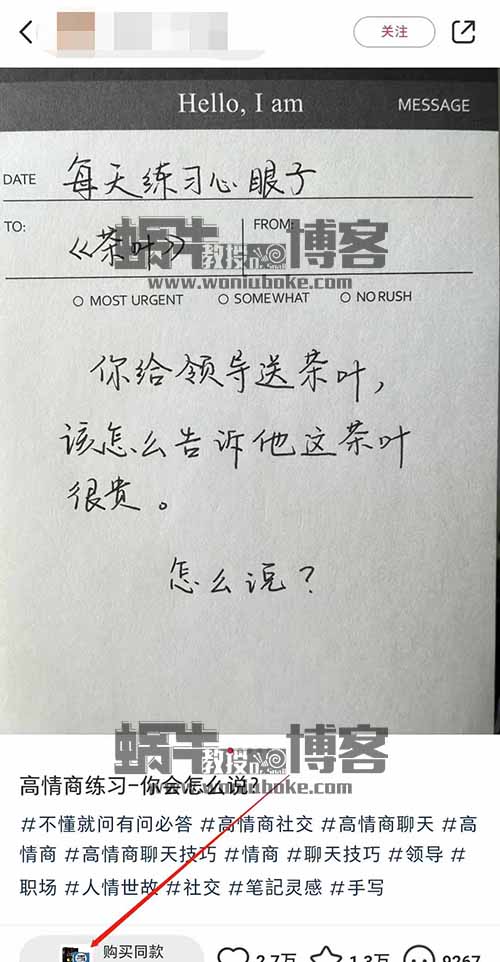 关注
Hello, I am
MESSAGE
DATE 每天练习心眼子
TO: 《茶叶》 FROM:
蜗牛教授的博客
www.woniuboke.com
MOST URGENT SOMEWHAT NO RUSH
你给领导送茶叶，
该怎么告诉他这茶叶
很贵。
怎么说？
蜗牛教授的博客
www.woniuboke.com
高情商练习-你会怎么说？
#不懂就问有问必答 #高情商社交 #高情商聊天 #高
情商 #高情商聊天技巧 #情商 #聊天技巧 #领导 #
职场 #人情世故 #社交 #笔記灵感 #手写
购买同款 2.7万 1.3万 9267